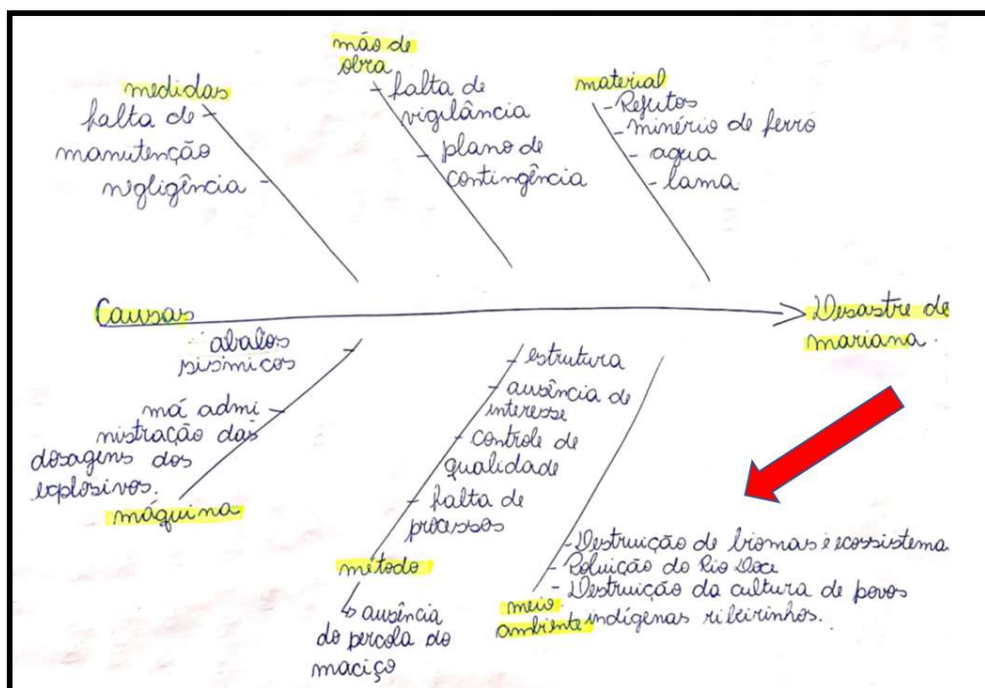 medidas
falta de
manutenção
negligência
mão de
obra
falta de
vigilância
plano de
contingência
material
- Rejeitos
- minério de ferro
- agua
- lama
Causas
Desastre de
mariana.
abalos
sismicos
má admi
nistração das
dosagens dos
explosivos.
máquina
- estrutura
- ausência de
interesse
- controle de
qualidade
- falta de
processos
método
↳ ausência
do percola do
maciço
- Destruição de biomas e ecossistema
- Poluição do Rio Doce
- Destruição da cultura de povos
indígenas ribeirinhos.
meio
ambiente